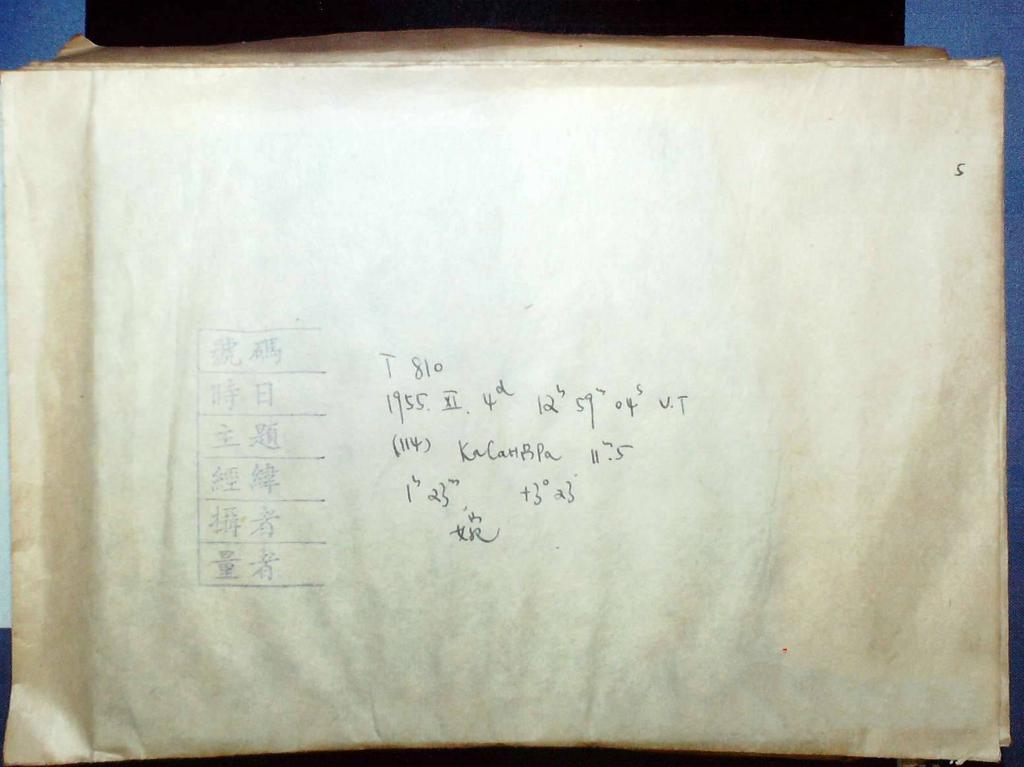 5
號碼
T 810
時日
1955. XI. 4ᵈ 12ʰ 59ᵐ 04ˢ U.T
主題
(114) KaCaHBPa 11ᵐ.5
經緯
1ʰ 23ᵐ +3° 23'
攝者
婉
量者